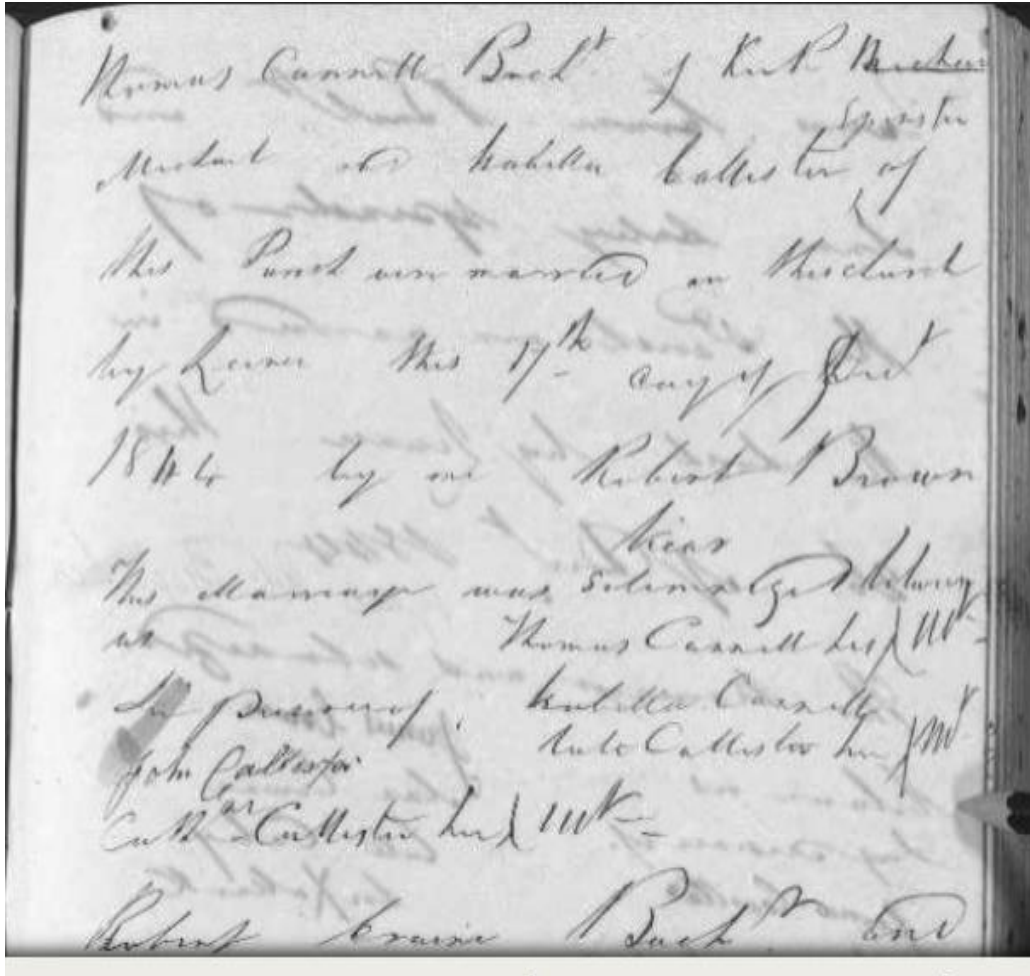 Thomas Cannell Bachr of Kirk
Spinster
Michael and Isabella Callister of
this Parish were married in this church
by Licence this 17th day of
1844 by me Robert Brown
Vicar
This Marriage was Solemnized between
us Thomas Cannell his } Mk
In presence of Isabella Cannell
John Callister late Callister her } Mk
Cathne Callister her } Mk
Robert Craine Bachr and